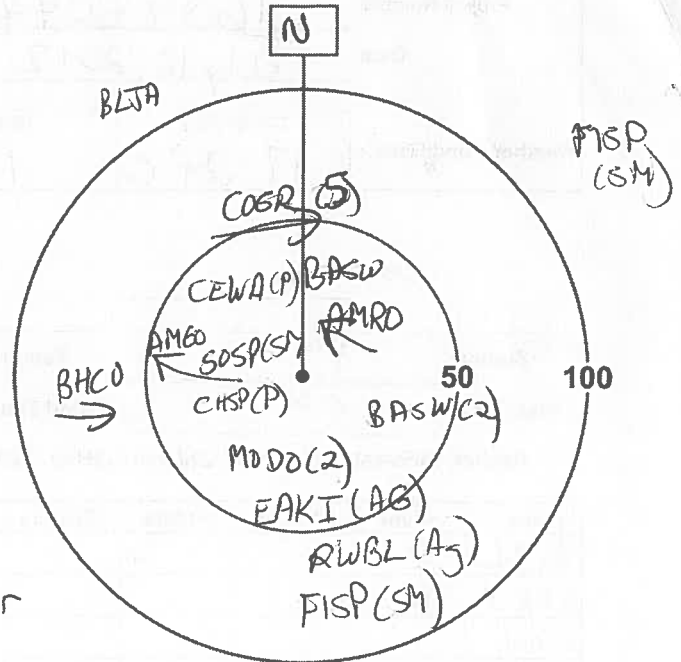 N
BLJA
FISP
(SM)
COGR (5)
CEWA(P) BASW
AMRO
AMGO
SOSP(SM
BHCO
CHSP(P)
50
100
BASW(2)
MODO(2)
EAKI(AG)
RWBL(Ag)
FISP(SM)
r